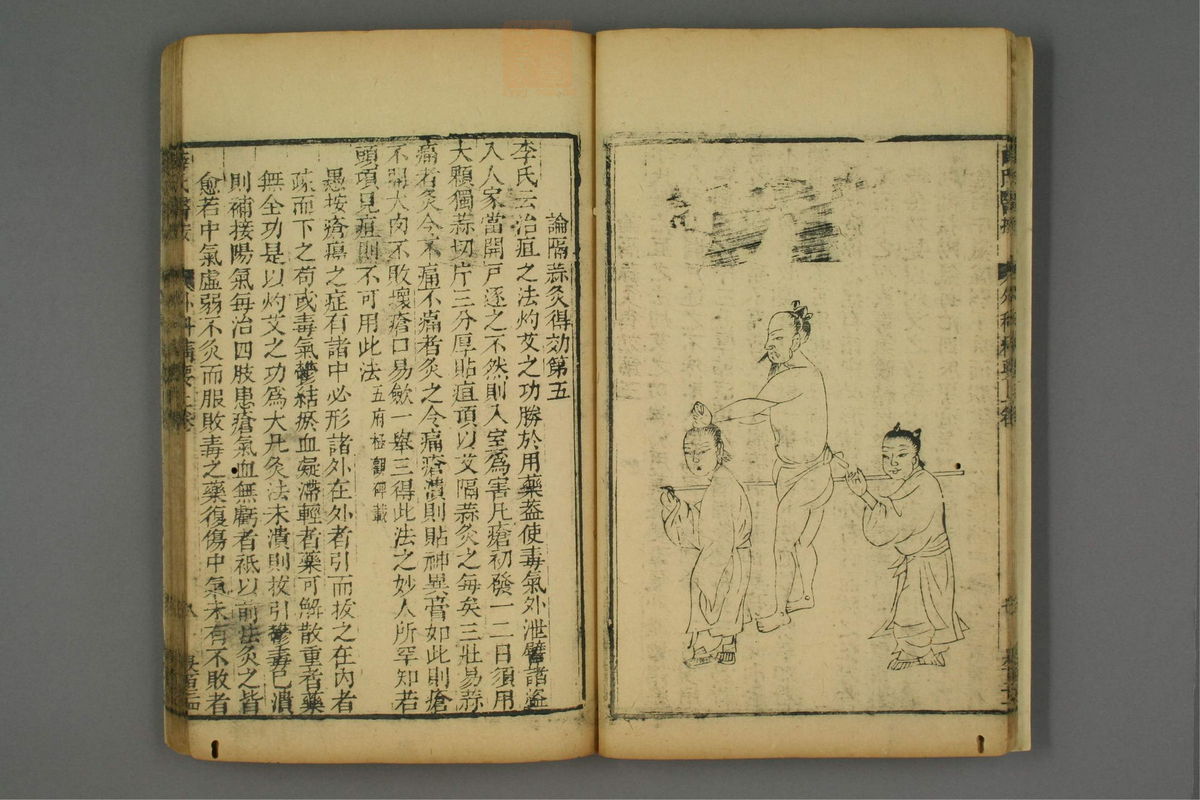 薛氏醫案
外科精要上卷
論隔蒜灸得効第五
李氏云治疽之法灼艾之功勝於用藥蓋使毒氣外泄譬諸盜
入人家當開戶逐之不然則入室爲害凡瘡初發一二日須用
大顆獨蒜切片三分厚貼疽頂以艾隔蒜灸之每矣三壯易蒜
痛者灸令不痛不痛者灸之令痛瘡潰則貼神異膏如此則瘡
不開大肉不敗壞瘡口易斂一舉三得此法之妙人所罕知若
頭項見疽則不可用此法五府極觀碑載
愚按瘡瘍之症有諸中必形諸外在外者引而拔之在內者
疎而下之苟或毒氣鬱結瘀血凝滯輕者藥可解散重者藥
無全功是以灼艾之功爲大凡灸法未潰則拔引鬱毒已潰
則補接陽氣每治四肢患瘡氣血無虧者祇以前法灸之皆
愈若中氣虛弱不灸而服敗毒之藥復傷中氣未有不敗者
薛氏醫案
外科精要上卷
八